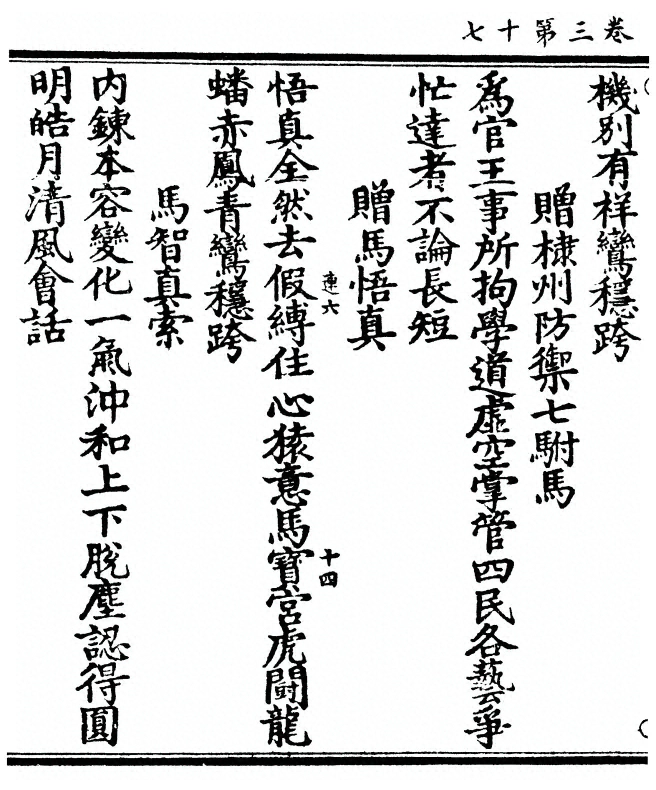 卷三第十七
機別有样鸞穩跨
贈棣州防禦七駙馬
爲官王事所拘學道虛空掌管四民各藝爭
忙達者不論長短
贈馬悟真
悟真全然去假縛住心猿意馬寳宮虎鬬龍
連六
十四
蟠赤鳳青鸞穩跨
馬智真索
内鍊本容變化一氣沖和上下脫塵認得圓
明皓月清風會話